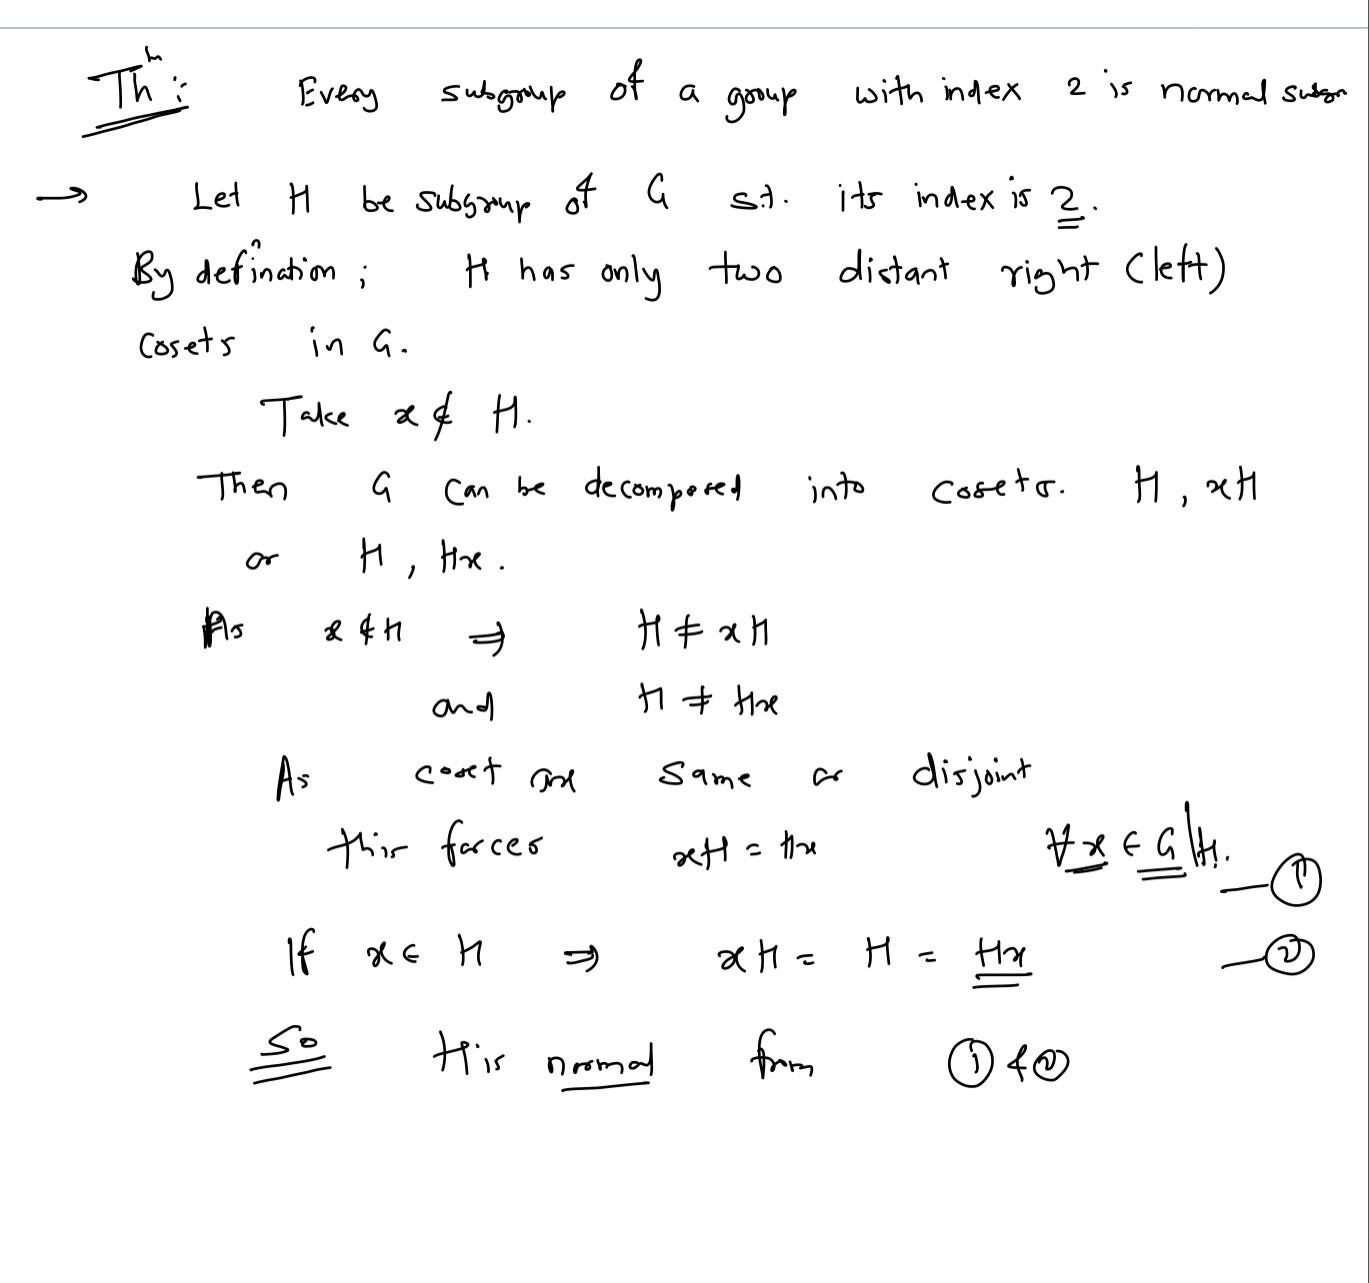 Thᵐ: Every subgroup of a group with index 2 is normal subgr
→ Let H be subgroup of G s.t. its index is 2.
By defination; H has only two distant right (left)
cosets in G.
Take x ∉ H.
Then G can be decomposed into cosets. H, xH
or H, Hx.
As x ∉ H ⇒ H ≠ xH
and H ≠ Hx
As coset are same or disjoint
this forces xH = Hx ∀ x ∈ G\H. —①
If x ∈ H ⇒ xH = H = Hx —②
So H is normal from ① & ②